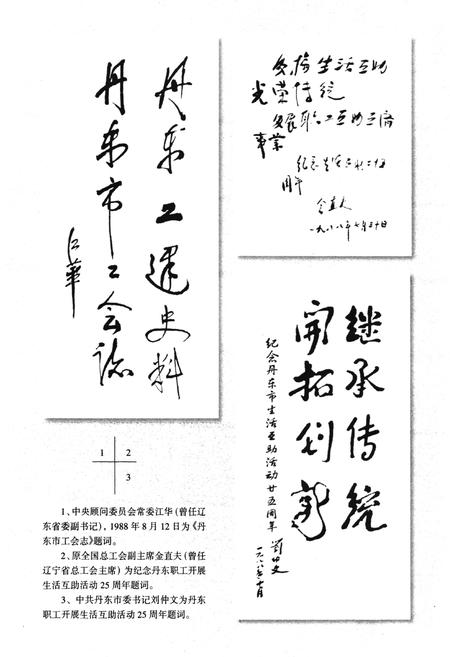 丹东工运史料
丹东市工会志
江华
发扬生活互助
光荣传统
发展职工互助互济
事业
纪念生活互助二十五
周年
金直夫
一九八八年七月三十日
继承传统
开拓创新
纪念丹东市生活互助活动廿五周年
刘仲文
一九八八年七月
1
2
3
1、中央顾问委员会常委江华(曾任辽
东省委副书记)，1988年8月12日为《丹
东市工会志》题词。
2、原全国总工会副主席金直夫(曾任
辽宁省总工会主席)为纪念丹东职工开展
生活互助活动25周年题词。
3、中共丹东市委书记刘仲文为丹东
职工开展生活互助活动25周年题词。